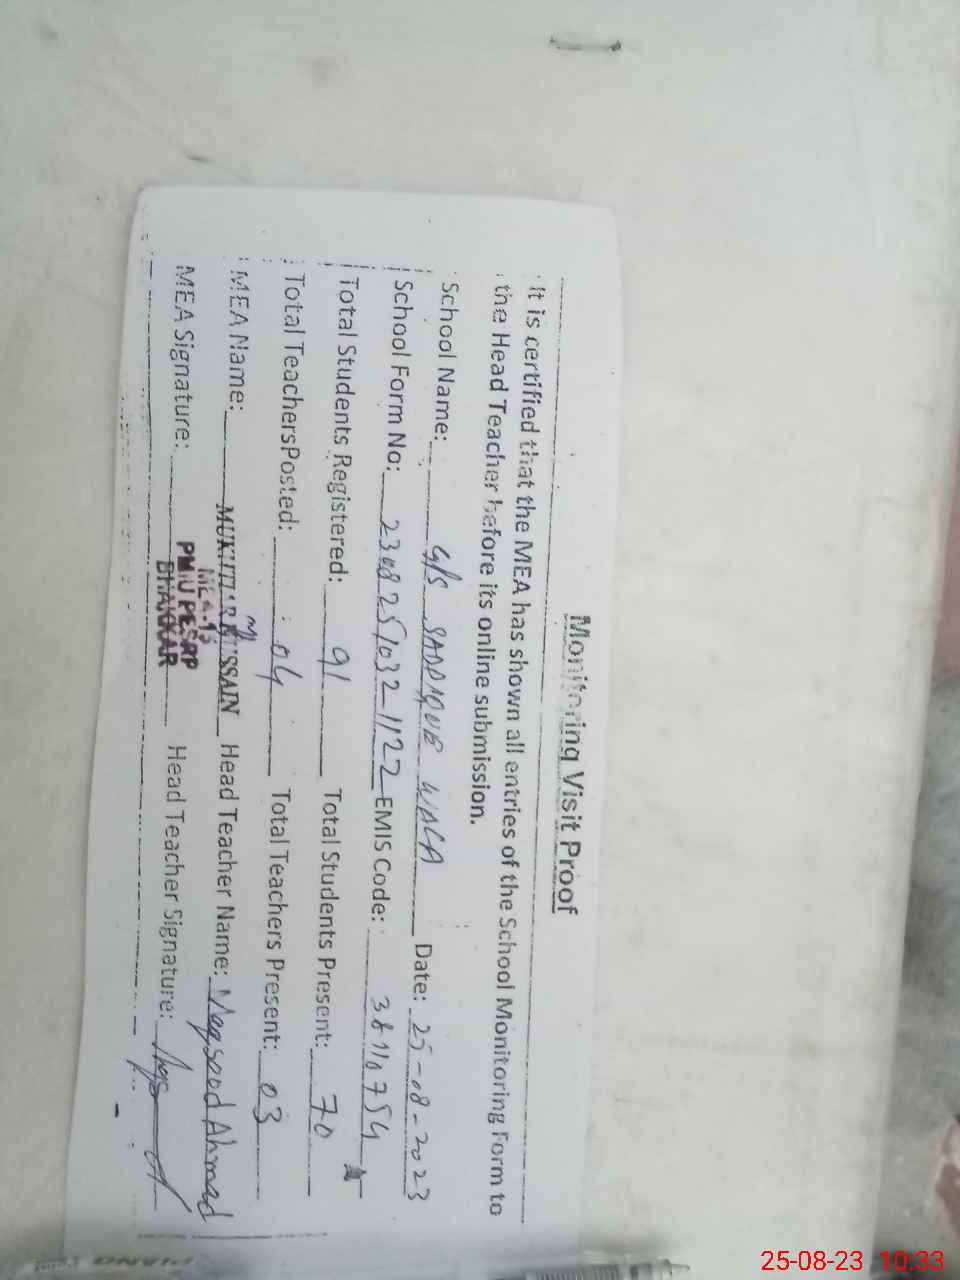 Monitoring Visit Proof
It is certified that the MEA has shown all entries of the School Monitoring Form to
the Head Teacher before its online submission.
School Name: G/S SADDIQUE WALA Date: 25-08-2023
School Form No: 230825/032-1122 EMIS Code: 38110754
Total Students Registered: 91 Total Students Present: 70
Total Teachers Posted: 04 Total Teachers Present: 03
MEA Name: MUKHTIAR HUSSAIN Head Teacher Name: Maqsood Ahmad
MEA-13
MEA Signature: PMIU PESRP Head Teacher Signature:
BHAKKAR
25-08-23 10:33